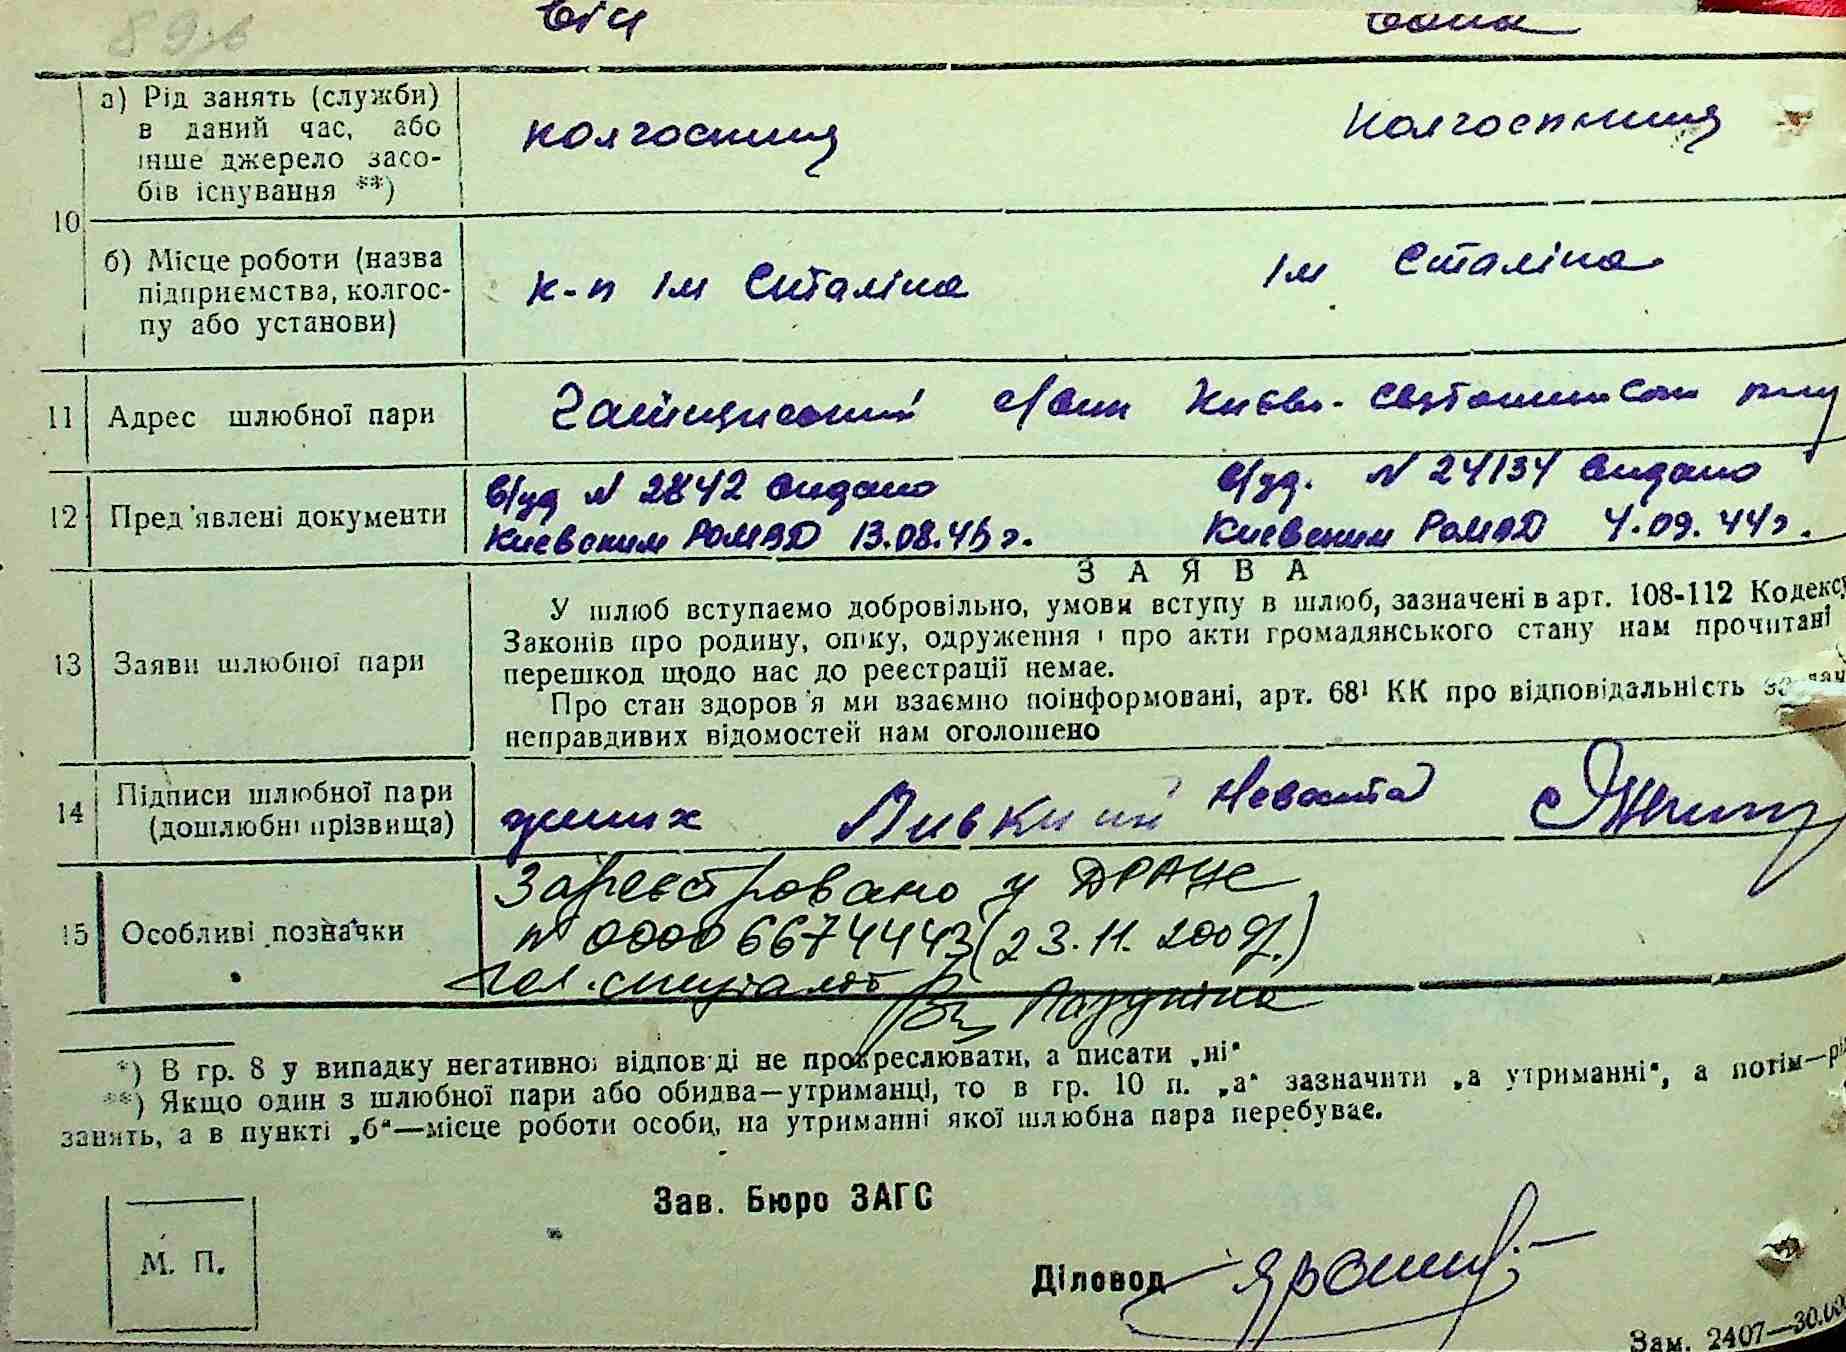 Він Вона
10 а) Рід занять (служби)
в даний час, або
інше джерело засо-
бів існування **)
колгоспниця колгоспниця
б) Місце роботи (назва
підприємства, колгос-
пу або установи)
к-п ім Сталіна ім Сталіна
11 Адрес шлюбної пари
Києво-Святошинского р-ну
12 Пред'явлені документи
в/уд N 2842 видано в/уд. N 24134 видано
Киевским РОМВД 13.08.45г. Киевским РОМВД 4.09.44г.
ЗАЯВА
У шлюб вступаємо добровільно, умови вступу в шлюб, зазначені в арт. 108-112 Кодексу
13 Заяви шлюбної пари
Законів про родину, опіку, одруження і про акти громадянського стану нам прочитані
перешкод щодо нас до реєстрації немає.
Про стан здоров'я ми взаємно поінформовані, арт. 68¹ КК про відповідальність за дачу
неправдивих відомостей нам оголошено
14 Підписи шлюбної пари
(дошлюбні прізвища)
жених Невеста
15 Особливі позначки
Зареєстровано у ДРАЦС
N 00006674443 (23.11.2009р.)
Гол. спеціаліст
*) В гр. 8 у випадку негативної відповіді не прокреслювати, а писати „ні“
**) Якщо один з шлюбної пари або обидва—утриманці, то в гр. 10 п. „а“ зазначити „а утриманні“, а потім—рід
занять, а в пункті „б“—місце роботи особи, на утриманні якої шлюбна пара перебуває.
Зав. Бюро ЗАГС
М. П.
Діловод
Зам. 2407—30.00